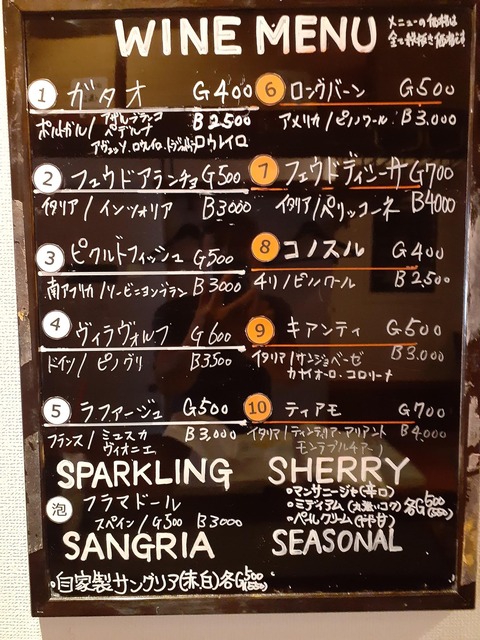 WINE MENU
メニューの価格は
全て税抜き価格です
1 ガタオ G400
ポルガル/アザルブランコ B2500
ペデルナ
アヴェッソ、ロウレイロ、トラジャドゥーラ ロウレイロ
2 フェウドアランチョ G500
イタリア/インツォリア B3000
3 ピクルドフィッシュ G500
南アフリカ/ソービニヨンブラン B3000
4 ヴィラヴォルフ G600
ドイツ/ピノグリ B3500
5 ラファージュ G500
フランス/ミュスカ B3,000
ヴィオニエ
6 ロングバーン G500
アメリカ/ピノノワール B3.000
7 フェウドディシーサ G700
イタリア/ペリッコーネ B4000
8 コノスル G400
チリ/ピノノワール B2,500
9 キアンティ G500
イタリア/サンジョベーゼ B3.000
カナイオーロ・コロリーナ
10 ティアモ G700
イタリア/ B4,000
モンテプルチアーノ
SPARKLING
泡 フラマドール
スペイン/G500 B3000
SANGRIA
・自家製サングリア(赤白)各G500
SHERRY
・マンサニージャ(辛口)
・ミディアム 各G500
・ペールクリーム
SEASONAL